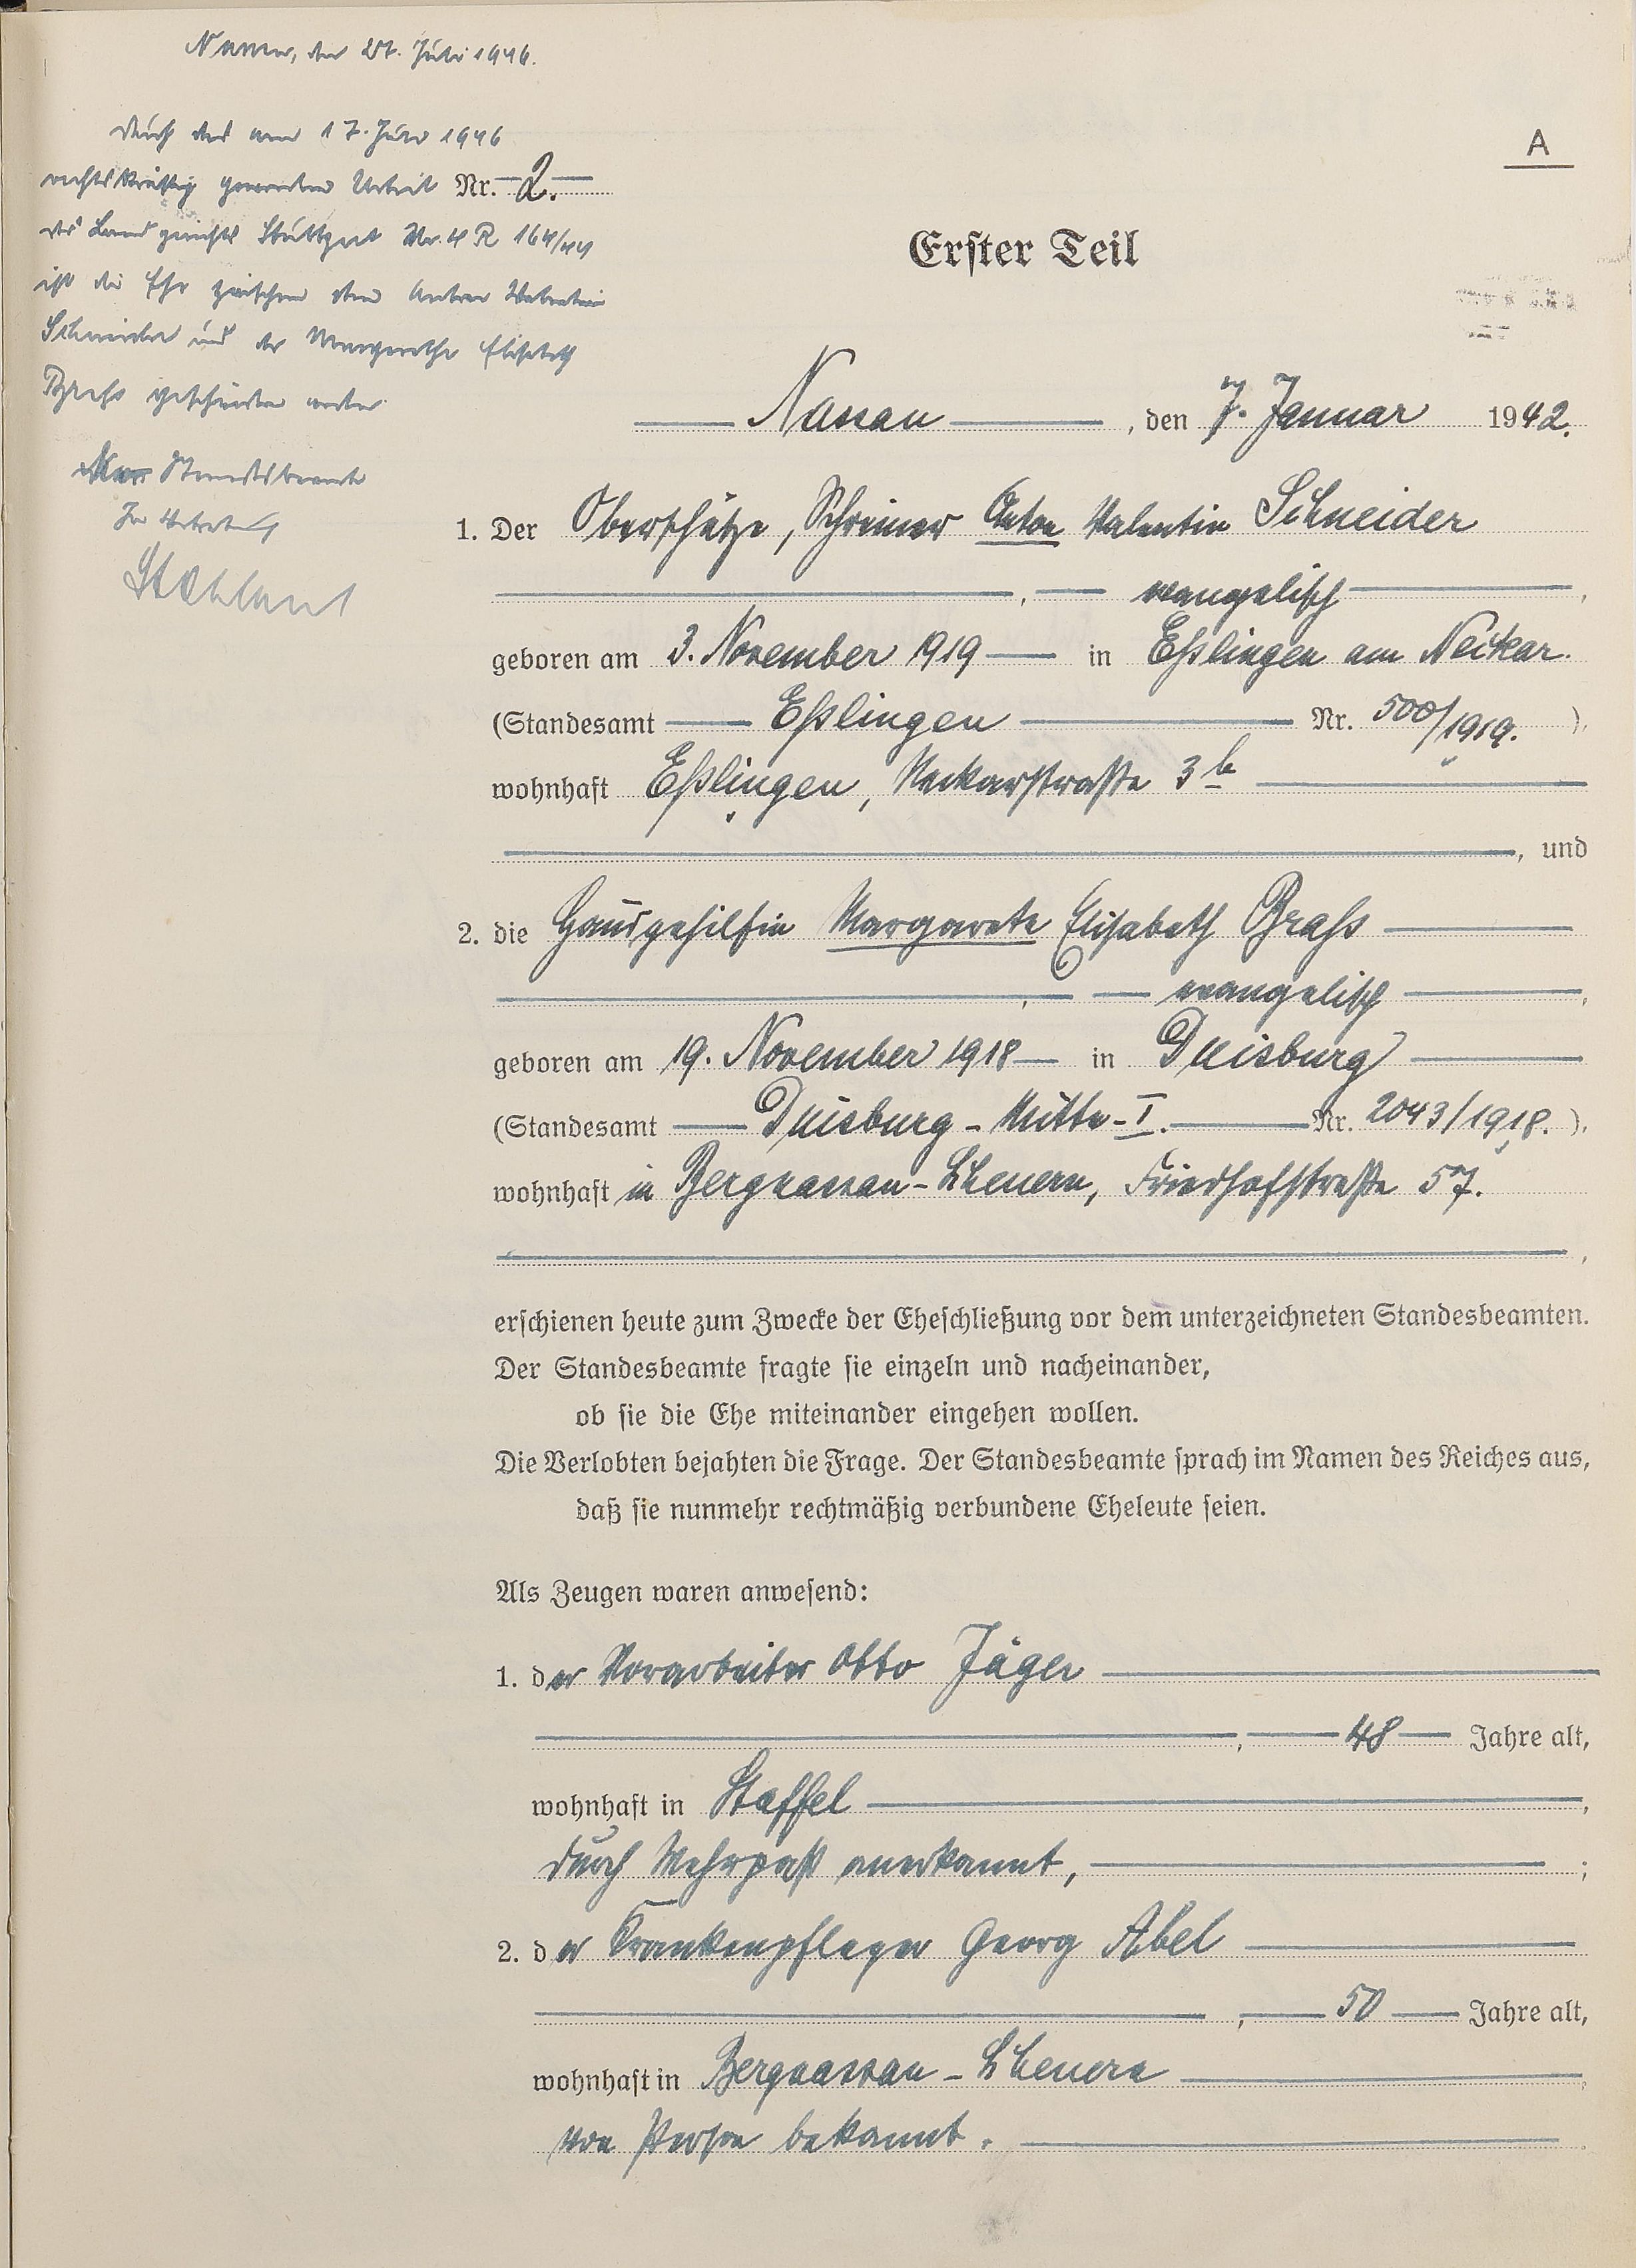 Nassau, den 27. Juli 1946.
Durch das am 17. Juni 1946
rechtskräftig gewordene Urteil
des Landgerichts Stuttgart Nr. 4 R 164/44
ist die Ehe zwischen dem Anton Valentin
Schneider und der Margarethe Elisabeth
Grahs geschieden worden.
Der Standesbeamte
In Vertretung
A
Nr. 2.
Erster Teil
Nassau, den 7. Januar 1942.
1. Der Oberschütze, Schreiner Anton Valentin Schneider
, evangelisch,
geboren am 3. November 1919 in Eßlingen am Neckar.
(Standesamt Eßlingen Nr. 500/1919. ),
wohnhaft Eßlingen, Neckarstraße 3 b
, und
2. die Hausgehilfin Margarete Elisabeth Grahs
, evangelisch,
geboren am 19. November 1918 in Duisburg
(Standesamt Duisburg-Mitte-I. Nr. 2043/1918. ),
wohnhaft in Bergnassau-Scheuern, Friedhofstraße 57.
,
erschienen heute zum Zwecke der Eheschließung vor dem unterzeichneten Standesbeamten.
Der Standesbeamte fragte sie einzeln und nacheinander,
ob sie die Ehe miteinander eingehen wollen.
Die Verlobten bejahten die Frage. Der Standesbeamte sprach im Namen des Reiches aus,
daß sie nunmehr rechtmäßig verbundene Eheleute seien.
Als Zeugen waren anwesend:
1. der Vorarbeiter Otto Jäger
, 48 Jahre alt,
wohnhaft in Staffel,
durch Wehrpaß anerkannt, ;
2. der Krankenpfleger Georg Abel
, 50 Jahre alt,
wohnhaft in Bergnassau-Scheuern,
von Person bekannt.